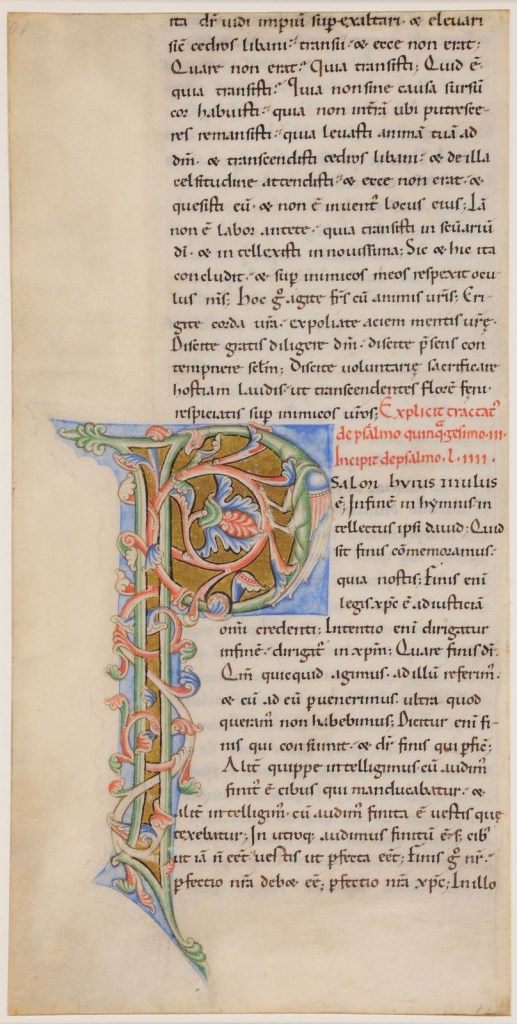 ita dr̄ vidi impiū sup exaltari · & eleuari
sic̄ cedros libani : transii · & ecce non erat ;
Quare non erat ? Quia transisti ; Quid ē
quia transisti ? Quia non sine causa sursū
cor habuisti · quia non intrā ubi putresce
res remansisti · quia leuasti animā tuā ad
dm̄ · & transcendisti cedros libani · & de illa
celsitudine attendisti · & ecce non erat · &
quesisti eū · & non ē inuent locus eius ; Iā
non ē labor ante te · quia transisti in sc̄uariū
dī · & intellexisti in nouissima ; Sic & hic ita
concludit · & sup inimicos meos respexit ocu
lus ms̄ ; Hoc g̊ agite frs̄ cū animis uris̄ ; Eri
gite corda ur̄a · expoliate aciem mentis ur̄ę ·
Discite gratis diligere dm̄ · discite p̄sens con
temnere sclm̄ ; Discite uoluntarię sacrificare
hostiam laudis · ut transcendentes florē feni
respiciatis sup inimicos uros̄ ; Explicit tractat
de psalmo quinq̄gesimo · iii ·
Incipit de psalmo · l · iiii ·
P Salmi huius titulus
ē ; In finē in hymnis in
tellectus ipsi dauid ; Quid
sit finis cōmemoramus ·
quia nostis ; Finis enī
legis · xpc̄ ē ad iusticiā
omī credenti ; Intentio enī dirigatur
in finē · dirigat in xpm̄ ; Quare finis dr̄ ·
Qm̄ quicquid agimus · ad illū referim ·
& cū ad eū peruenerimus · ultra quod
queram̄ non habebimus ; Dicitur enī fi
nis qui consumit · & dr̄ finis qui pficit ;
Alit̄ quippe intelligimus cū audim̄
finit ē cibus qui manducabatur · &
alit̄ intelligim̄ · cū audim̄ finita ē uestis quę
texebatur ; In utroq; audimus finitū ēē ; cib
ut iā n̄ eēt · uestis ut pfecta eēt ; Finis g̊ nr̄ ·
pfectio nr̄a debet eē ; pfectio nr̄a xpc̄ ; In illo